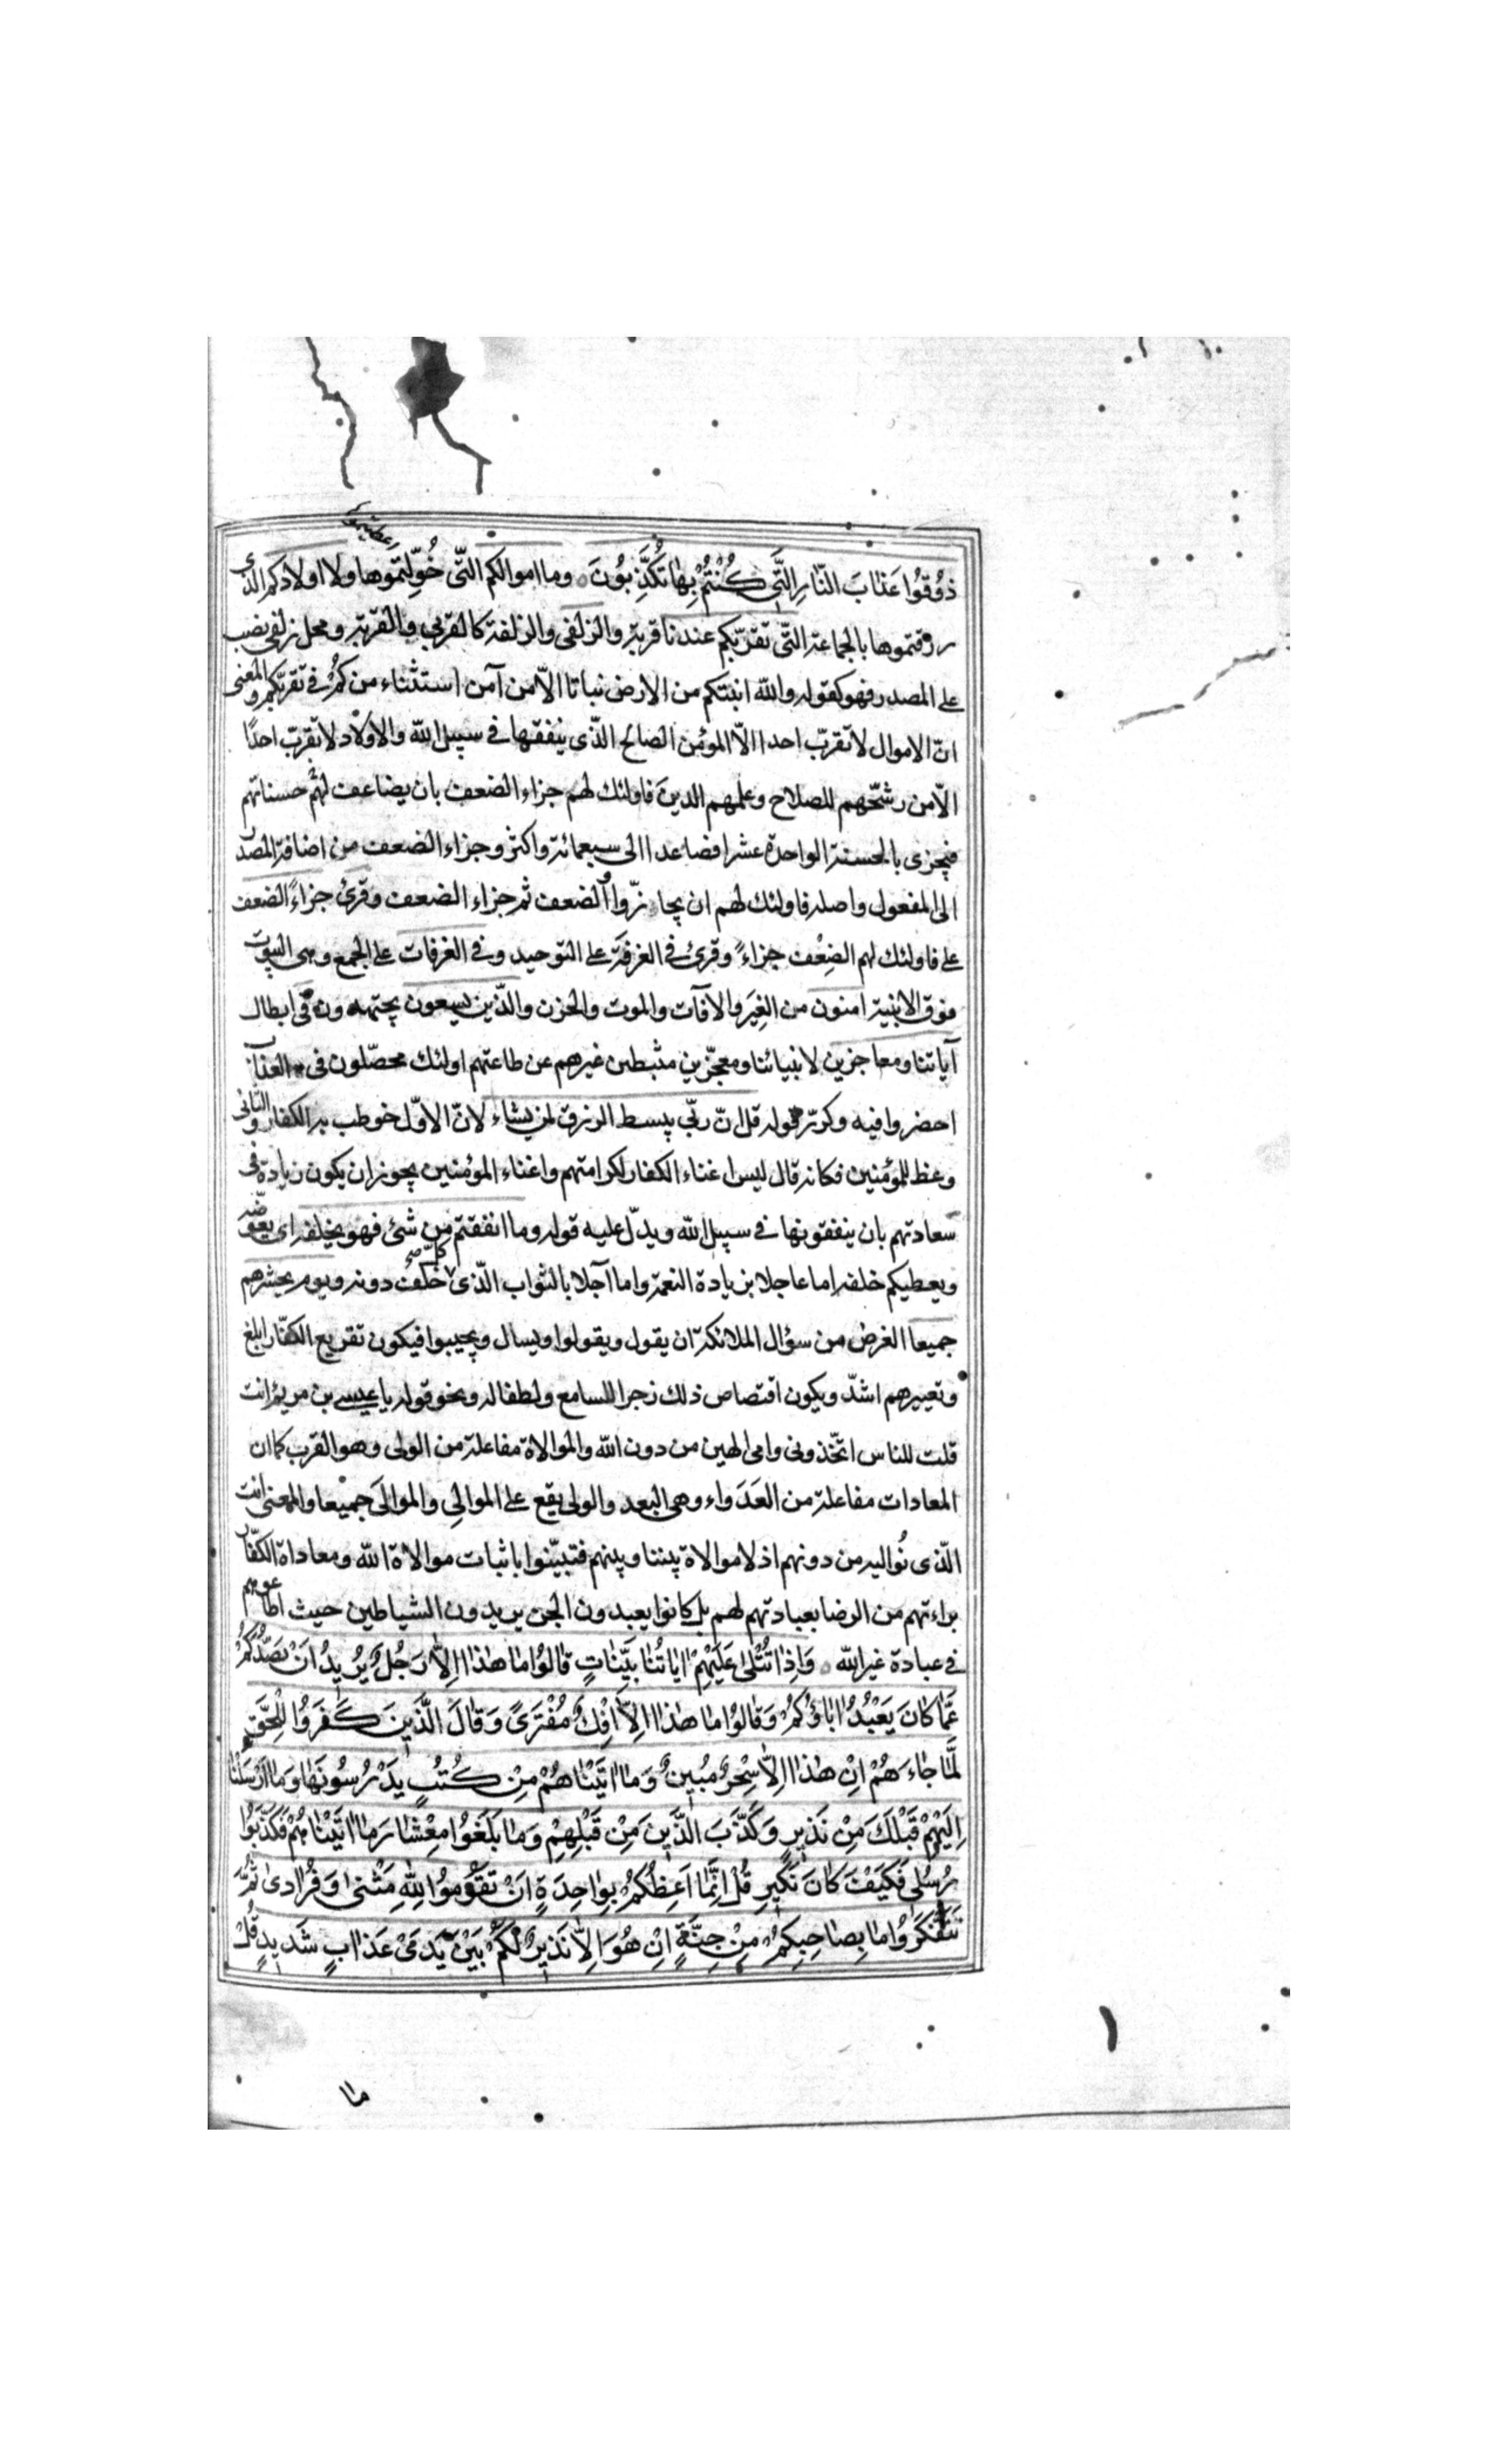 اعطيتموها
ذُوقُوا عَذَابَ النَّارِ الَّتِي كُنْتُمْ بِهَا تُكَذِّبُونَ وما اموالكم التّى خُوِّلتموها ولا اولادكم الذى
رزقتموها بالجماعة التّى تقرّبكم عندنا قربة والزلفى والزلفة كالقربى والقربة ومحل زلفى نصب
على المصدر فهو كقوله والله انبتكم من الارض نباتا الّا من آمن استثناء من كُم في تقربكم والمعنى
انّ الاموال لا تقرّب احدا الّا المؤمن الصالح الذّى ينفقها في سبيل الله والاولاد لا تقرّب احدًا
الّا من رشّحهم للصلاح وعلمهم الدين فاولئك لهم جزاء الضعف بان يضاعف لهم حسناتهم
فيجزى بالحسنة الواحدة عشرا فصاعدا الى سبعمائة واكثر وجزاء الضعف من اضافة المصدر
الى المفعول واصله فاولئك لهم ان يجازوا الضعف ثم جزاء الضعف وقرئ جزاءً الضعف
على فاولئك لهم الضِعْف جزاءً وقرئ في الغرفة على التوحيد وفي الغرفات على الجمع وهى البيوت
فوق الابنية امنون من الغِيَر والافآت والموت والحزن والذّين يسعون يجتهدون في ابطال
آياتنا ومعاجزين لانبيائنا ومعجّزين مثبطين غيرهم عن طاعتهم اولئك محصّلون فى العذاب
احضروا فيه وكرّر قوله قل انّ ربّي يبسط الرزق لمن يشاء لانّ الاوّل خوطب به الكفار والثانى
وعظ للمؤمنين فكانه قال ليس اغناء الكفار لكرامتهم واغناء المؤمنين يجوز ان يكون زيادة فى
سعادتهم بان ينفقونها في سبيل الله ويدلّ عليه قوله وما انفقتم من شئ فهو يخلفه اى يعوّضه
ويعطيكم خلفه اما عاجلا بزيادة النعمة واما آجلا بالثواب الذّى كل خَلَف دونه ويوم يحشرهم
جميعا الغرض من سؤال الملائكة ان يقول ويقولوا ويسال ويجيبوا فيكون تقريع الكفّار ابلغ
وتعييرهم اشدّ ويكون اقتصاص ذلك زجرا للسامع ولطفا له ونحو قوله يا عيسى بن مريم ءانت
قلت للناس اتّخذونى وامى الهين من دون الله والموالاة مفاعلة من الولى وهو القرب كما ان
المعادات مفاعلة من العَدَواء وهى البعد والولى يقع على الموالِي والموالَى جميعا والمعنى انت
الّذى نُواليه من دونهم اذ لا موالاة بيننا وبينهم فتبيّنوا باثبات موالاة الله ومعاداة الكفّار
براءتهم من الرضا بعبادتهم لهم بل كانوا يعبدون الجن يريدون الشياطين حيث اطاعوهم
في عبادة غير الله وَاِذَا تُتْلَىٰ عَلَيْهِمْ اٰيَاتُنَا بَيِّنَاتٍ قَالُوا مَا هٰذَا اِلَّا رَجُلٌ يُرِيدُ اَنْ يَصُدَّكُمْ
عَمَّا كَانَ يَعْبُدُ اٰبَاؤُكُمْ وَقَالُوا مَا هٰذَا اِلَّا اِفْكٌ مُفْتَرًى وَقَالَ الَّذِينَ كَفَرُوا لِلْحَقِّ
لَمَّا جَاءَهُمْ اِنْ هٰذَا اِلَّا سِحْرٌ مُبِينٌ وَمَا اٰتَيْنَاهُمْ مِنْ كُتُبٍ يَدْرُسُونَهَا وَمَا اَرْسَلْنَا
اِلَيْهِمْ قَبْلَكَ مِنْ نَذِيرٍ وَكَذَّبَ الَّذِينَ مِنْ قَبْلِهِمْ وَمَا بَلَغُوا مِعْشَارَ مَا اٰتَيْنَاهُمْ فَكَذَّبُوا
رُسُلِي فَكَيْفَ كَانَ نَكِيرِ قُلْ اِنَّمَا اَعِظُكُمْ بِوَاحِدَةٍ اَنْ تَقُومُوا لِلّٰهِ مَثْنىٰ وَفُرَادىٰ ثُمَّ
تَتَفَكَّرُوا مَا بِصَاحِبِكُمْ مِنْ جِنَّةٍ اِنْ هُوَ اِلَّا نَذِيرٌ لَكُمْ بَيْنَ يَدَىْ عَذَابٍ شَدِيدٍ قُلْ
ما